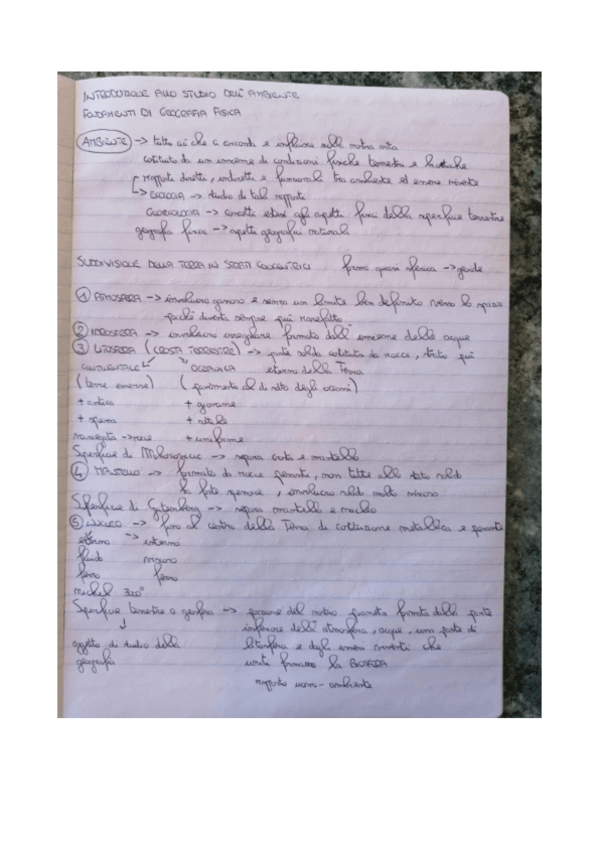 INTRODUZIONE ALLO STUDIO DELL'AMBIENTE
FONDAMENTI DI GEOGRAFIA FISICA
AMBIENTE -> tutto ciò che ci circonda e influisce sulla nostra vita
costituito da un insieme di condizioni fisiche terrestri e biotiche
rapporti diretti, indiretti e funzionali tra ambiente ed essere vivente
-> ECOLOGIA -> studio di tali rapporti
GEOECOLOGIA -> concetto esteso agli aspetti fisici della superficie terrestre
geografia fisica -> aspetti geografici naturali
SUDDIVISIONE DELLA TERRA IN STRATI GEOCENTRICI forma quasi sferica -> geoide
1 ATMOSFERA -> involucro gassoso e senza un limite ben definito verso lo spazio
poiché diventa sempre più rarefatto
2 IDROSFERA -> involucro irregolare formato dall'insieme delle acque
3 LITOSFERA (CROSTA TERRESTRE) -> parte solida costituita da rocce, strato più
CONTINENTALE OCEANICA esterno della Terra
(terre emerse) (pavimento al di sotto degli oceani)
+ antica + giovane
+ spessa + sottile
variegata -> rocce + uniforme
Superficie di Mohorovicic -> separa crosta e mantello
4 MANTELLO -> formato da rocce pesanti, non tutte allo stato solido
la parte superiore, involucro solido molto viscoso
Superficie di Gutenberg -> separa mantello e nucleo
5 NUCLEO -> fino al centro della Terra di costituzione metallica e pesante
esterno -> interno
fluido viscoso
ferro ferro
nichel
Superficie terrestre o geosfera -> porzione del nostro pianeta formata dalla parte
inferiore dell'atmosfera, acque, una parte di
oggetto di studio della litosfera e dagli esseri viventi che
geografia uniti formano la BIOSFERA
rapporto uomo-ambiente